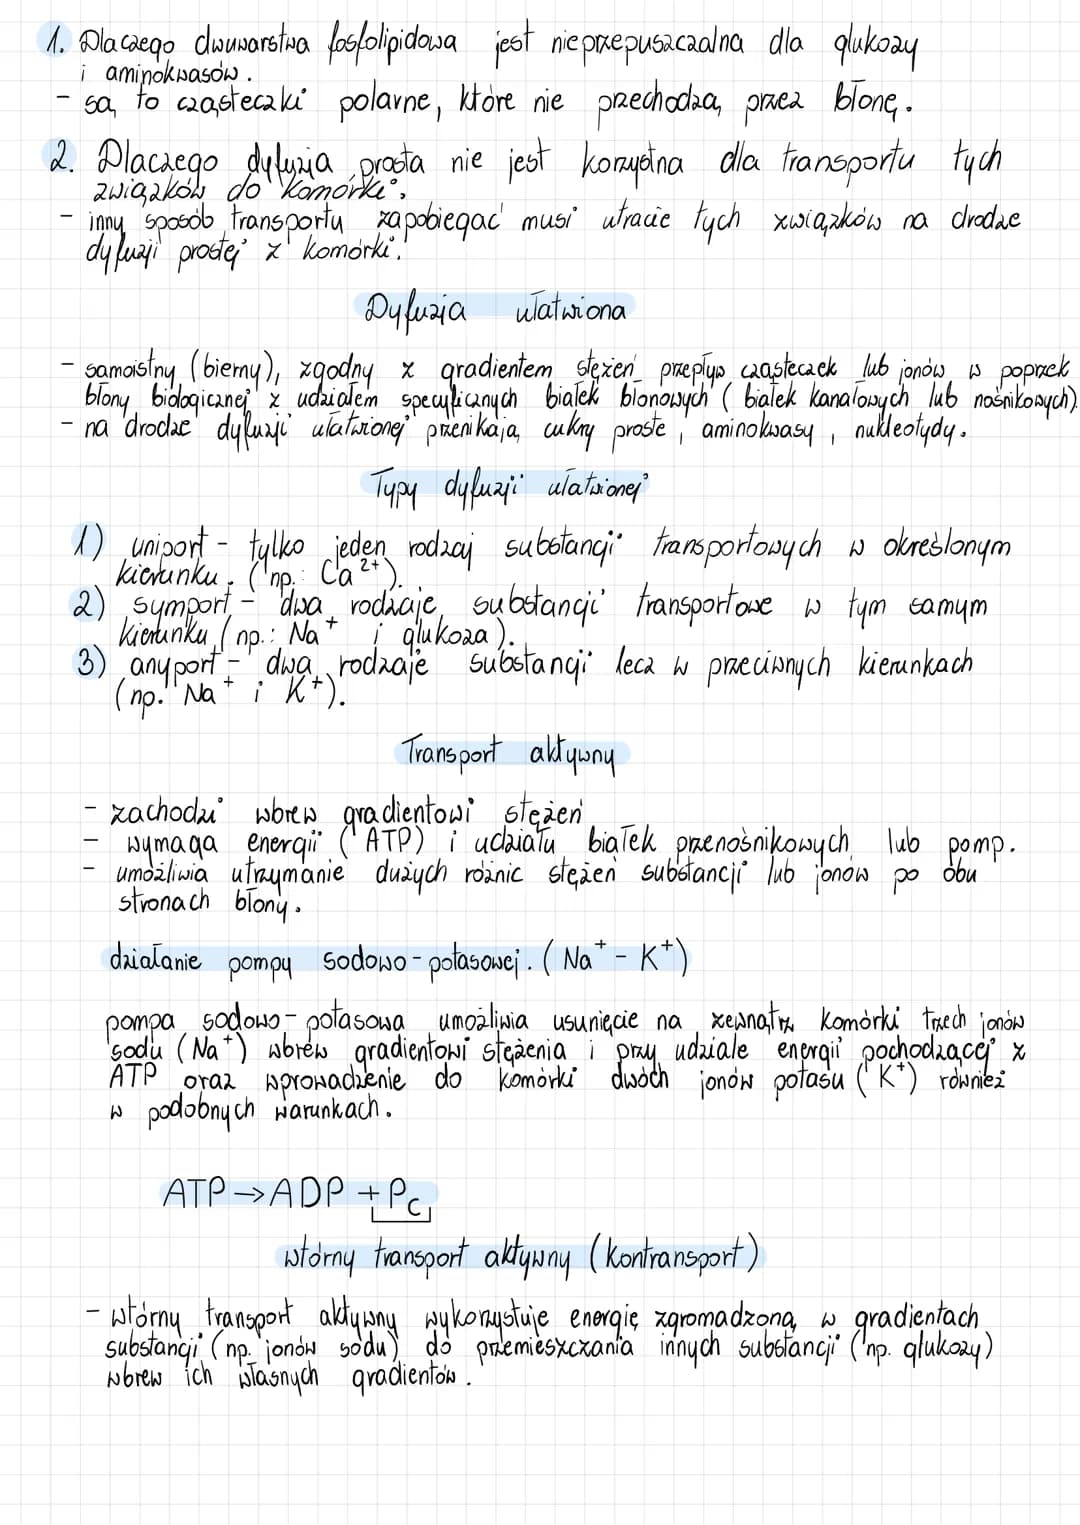 1. Dlaczego dwuwarstwa fosfolipidowa jest nieprzepuszczalna dla glukozy
i aminokwasów.
- są to cząsteczki polarne, które nie przechodzą przez błonę.
2. Dlaczego dyfuzja prosta nie jest korzystna dla transportu tych
związków do komórki.
- inny sposób transportu zapobiegać musi utracie tych związków na drodze
dyfuzji prostej z komórki.
Dyfuzja ułatwiona
- samoistny (bierny), zgodny z gradientem stężeń przepływ cząsteczek lub jonów w poprzek
błony biologicznej z udziałem specyficznych białek błonowych (białek kanałowych lub nośnikowych).
- na drodze dyfuzji ułatwionej przenikają cukry proste, aminokwasy, nukleotydy.
Typy dyfuzji ułatwionej
1) uniport - tylko jeden rodzaj substancji transportowych w określonym
kierunku. (np.: Ca²⁺).
2) symport - dwa rodzaje substancji transportowe w tym samym
kierunku (np.: Na⁺ i glukoza).
3) anyport - dwa rodzaje substancji lecz w przeciwnych kierunkach
(np. Na⁺ i K⁺).
Transport aktywny
- zachodzi wbrew gradientowi stężeń
- wymaga energii (ATP) i udziału białek przenośnikowych lub pomp.
- umożliwia utrzymanie dużych różnic stężeń substancji lub jonów po obu
stronach błony.
działanie pompy sodowo-potasowej. (Na⁺ - K⁺)
pompa sodowo-potasowa umożliwia usunięcie na zewnątrz komórki trzech jonów
sodu (Na⁺) wbrew gradientowi stężenia i przy udziale energii pochodzącej z
ATP oraz wprowadzenie do komórki dwóch jonów potasu (K⁺) również
w podobnych warunkach.
ATP → ADP + Pc
wtórny transport aktywny (kontransport)
- wtórny transport aktywny wykorzystuje energię zgromadzoną w gradientach
substancji (np. jonów sodu) do przemieszczania innych substancji (np. glukozy)
wbrew ich własnych gradientów.